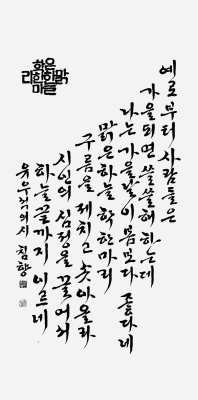 맑은하늘학한마리
예로부터 사람들은
가을되면 쓸쓸해 하는데
나는 가을날이 봄보다 좋다네
맑은하늘 학 한마리
구름을 제치고 솟아올라
시인의 심정을
하늘끝까지 이르네
유우석의 시 침향